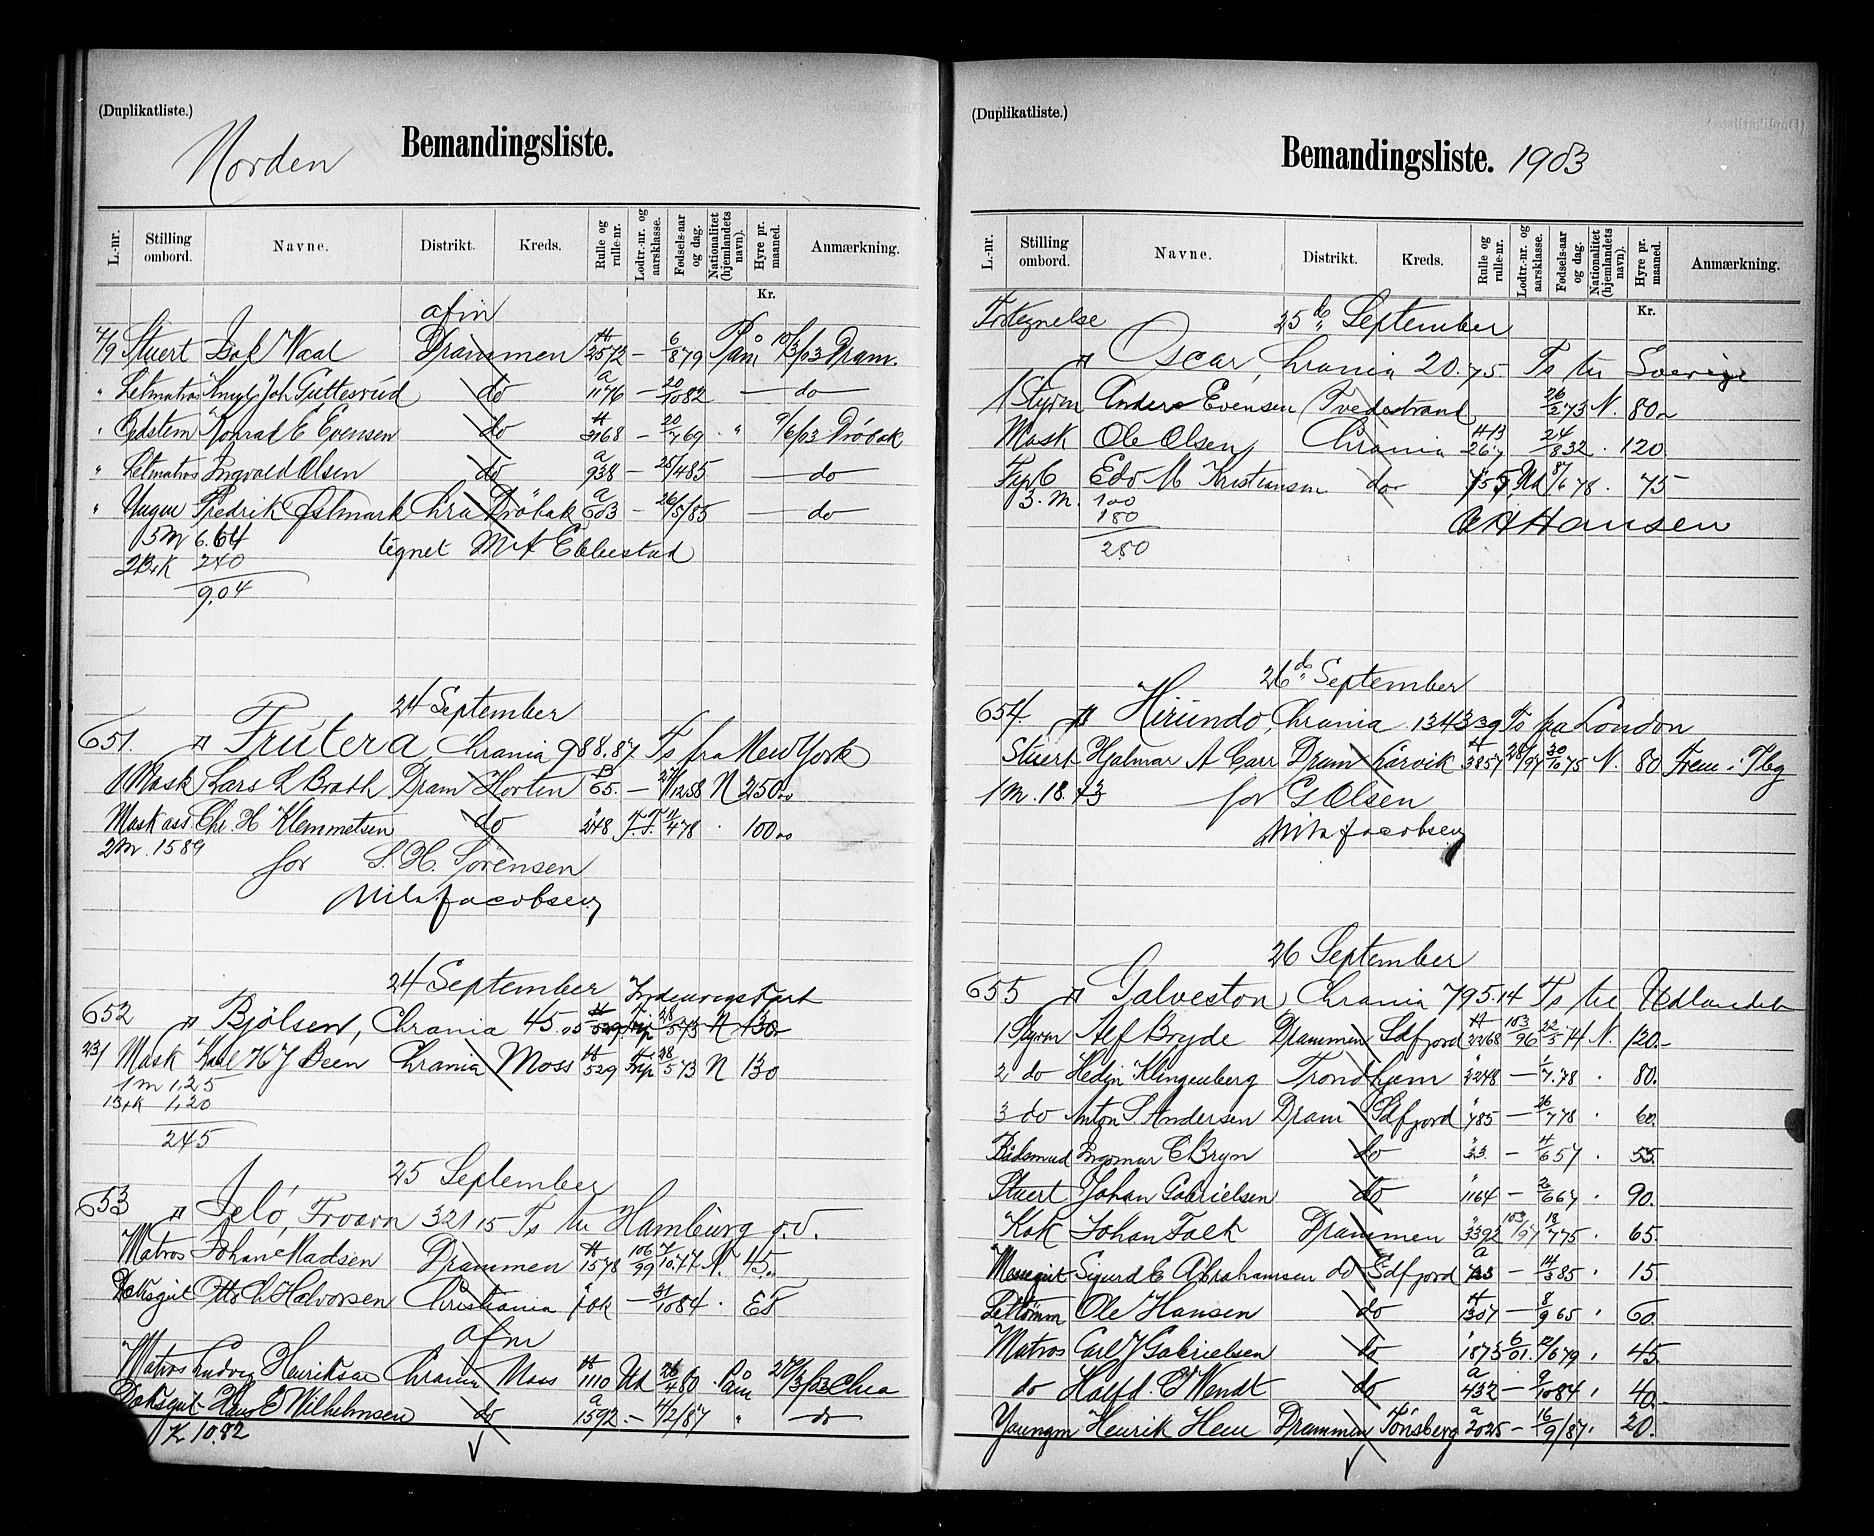 (Duplikatliste.)
Norden
Bemandingsliste.
L.-nr. Stilling ombord. Navne. Distrikt. Kreds. Rulle og rulle-nr. Lodtr.-nr. og aarsklasse. Fødsels-aar og dag. Nationalitet (hjemlandets navn). Hyre pr. maaned. Anmærkning.
Kr.
afm
4/9 Stuert Isak Waal Drammen 2572 — 6/8 79 Påm 10/3/03 Dram.
" Letmatros Joh Guttesrud do a 1176 — 20/10 82 — do —
" Bedstem Konrad E Evensen do 3168 — 20/7 69 " 9/6/03 Drøbak
" Letmatros Ingvald Olsen do a 938 — 25/4 85 — do —
" Ungm Fredrik Østmark Chra Drøbak a 603 — 26/5/85 — do —
5 M 6.64 tegnet M A Ebbestad
2 B+K 240
9.04
24 September
651. Frutera Chrania 988.87 Ts fra New York
1 Mask Lars L Brath Dram Horten B 65. — 12 58 N 250
Mask ass Chr. H Klemmetsen do 248 F.F. 11/4 78 . 100
2 M. 1589 for S. H. Sørensen
Nils Jacobsen
24 September Indenrigs Fart
652 Bjølsen, Chrania 45.05 529 Frip 28/5 73 N 130
23/ Mask Karl H J Been Chrania Moss 529 Frip 28/5 73 N 130
1 M 1,25
1 B+K 1,20
245
25 September
653 Jelö, Froarn 321 15 Ts til Hamburg o.v.
Matros Johan Madsen Drammen 1578 106/99 7/10.77 N. 45
Dæksgut Otto L Halvorsen Christiania fok — 31/10 84 . ET
afm
Matros Ludvig Henriksen Chrania Moss 1110 Ud 26/4 80 . Påm 2 /3/03 Chra
Dæksgut Hans E Wilhelmsen do a 1592 — 4/2/87 " — do —
K 10.82
(Duplikatliste.)
Bemandingsliste. 1903
L.-nr. Stilling ombord. Navne. Distrikt. Kreds. Rulle og rulle-nr. Lodtr.-nr. og aarsklasse. Fødsels-aar og dag. Nationalitet (hjemlandets navn). Hyre pr. maaned. Anmærkning.
Kr.
Fortegnelse 25 de September
Oscar, Chrania 20.75. Ts til Sverige
1 Styrm Anders Evensen Tvedestrand 26/2 73 N. 80
Mask Ole Olsen Chrania 24/8 32 . 120
Fyrb Edv M Kristiansen do Ud 8/6 78 . 75
3. M. 100
180
280
A H Hansen
26 de September
654 Hirundo, Chrania 1343 39 Ts fra London
Stuert Hjalmar A Carr Dram Larvik 3857 /97 30/10 75 N. 80 Frem i Tbg
1 M. 18.43 for G Olsen
Nils Jacobsen
26 September
655 Galveston, Chrania 795.14 Ts til Udlandet
1 Styrm Alf Bryde Drammen Sdfjord 2268 103/96 22/5 74 N. 120.-
2 do Hedin Klingenberg Trondhjem 2248 — 1/7.78 . 80.
3 do Anton S. Andersen Dram Sdfjord 785 — 26/7 78 . 60.
Bådsmad Ingomar E Bryn do 33. — 4/6 57 . 55.
Stuert Johan Gabrielsen do 1164 — 2/6 67 . 90.
Kok Johan Falk Drammen 3392 103/97 18/7 75 . 65.
Messegut Sigurd E Abrahamsen do Sdfjord a 723 — 14/3 85 . 15.
Lettømm Ole Hansen do 1307 — 8/9 65 . 60.
Matros Carl J Gabrielsen do 1873 6/01. 12/6 79 . 45
do Halfd. E Wendt do a 432 — 9/10 84 . 40.
Youngm Henrik Hem Drammen Tønsberg a 2025 — 16/9/87. 20.